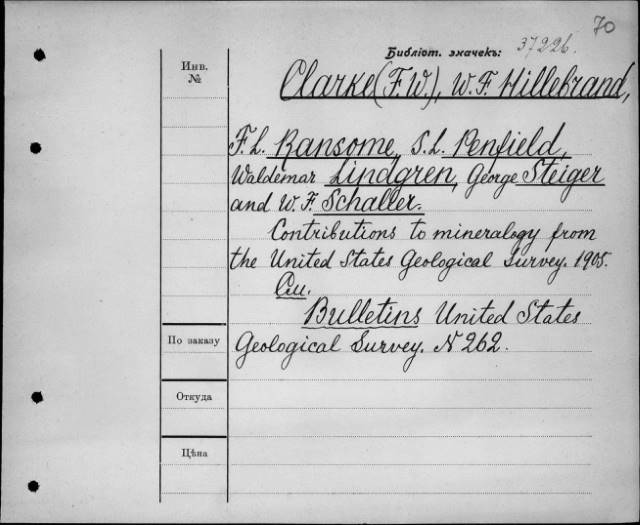 70
Библіот. значекъ: 37226.
Инв.
№
Clarke (F.W.), W.F. Hillebrand,
F.L. Ransome, S.L. Penfield,
Waldemar Lindgren, George Steiger
and W.F. Schaller.
Contributions to mineralogy from
the United States Geological Survey. 1905.
Cu.
Bulletins United States
По заказу
Geological Survey. N 262.
Откуда
Цѣна